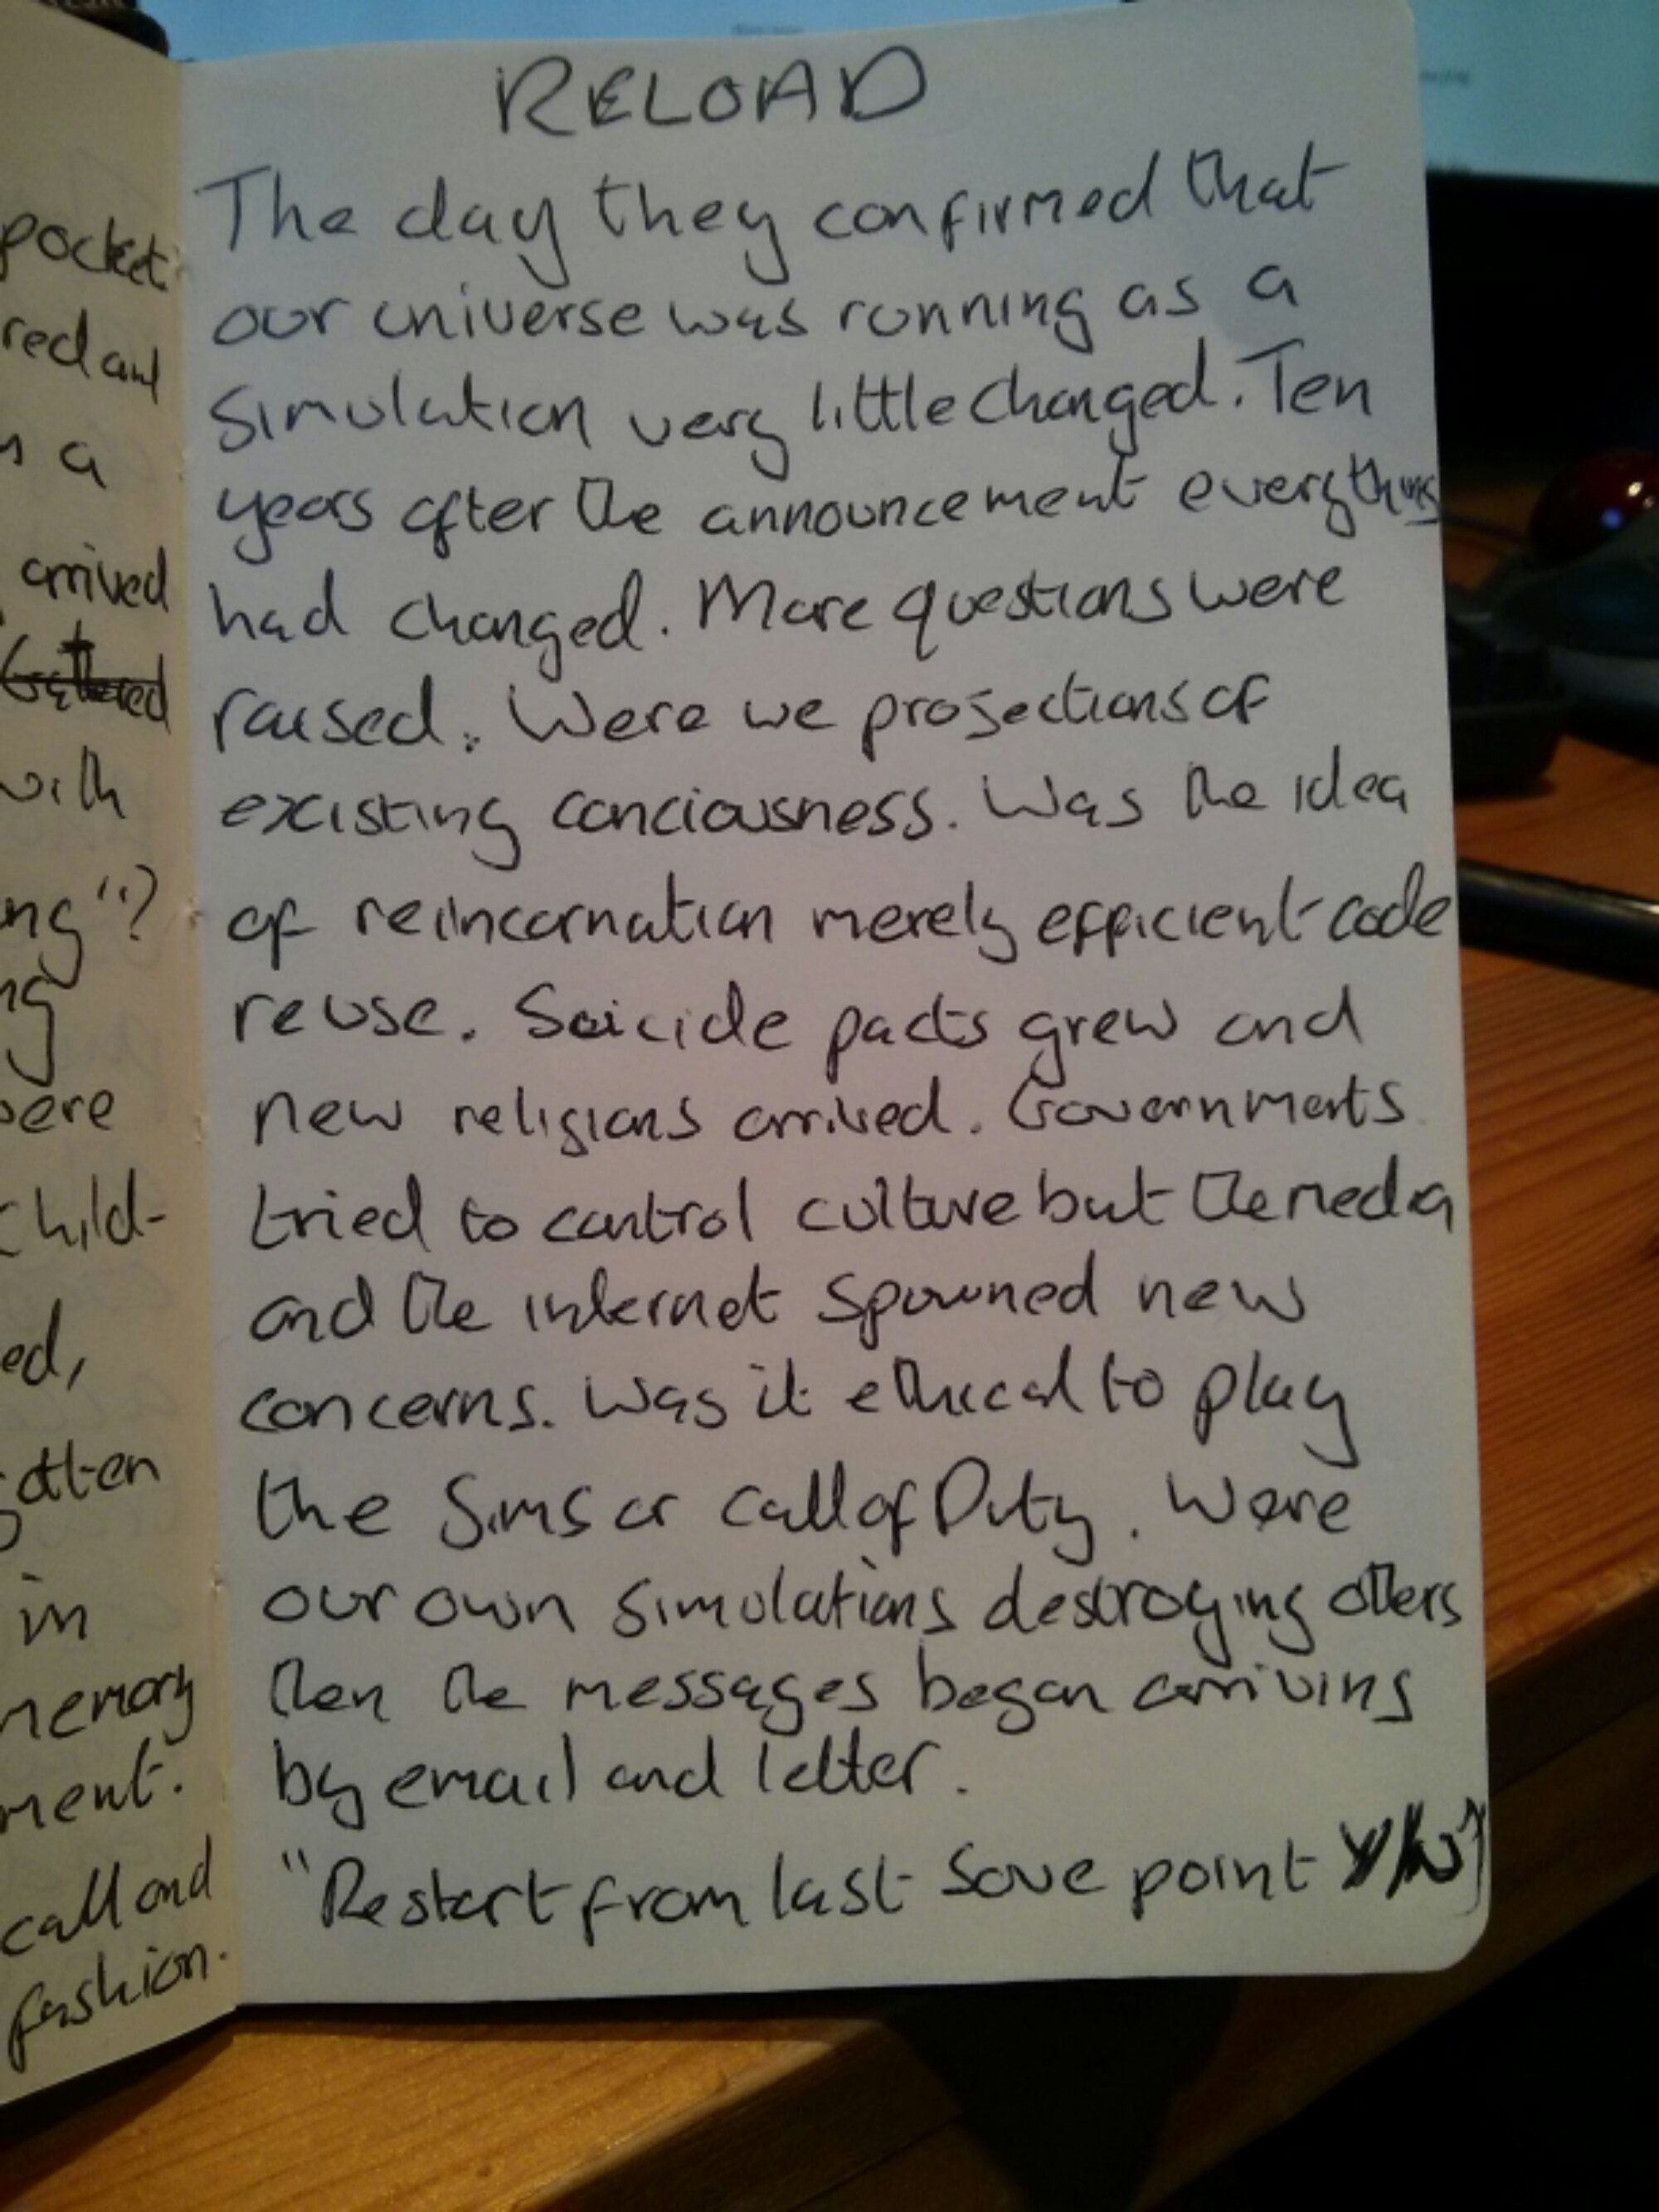 pocket
red and
a
arrived
Gathered
with
ng"?
ng
ere
child-
ed,
gotten
in
memory
ment.
call and
fashion.
RELOAD
The day they confirmed that
our universe was running as a
simulation very little changed. Ten
years after the announcement everything
had changed. More questions were
raised. Were we projections of
existing conciousness. Was the idea
of reincarnation merely efficient code
reuse. Suicide pacts grew and
new religions arrived. Governments
tried to control culture but the media
and the internet spawned new
concerns. Was it ethical to play
the Sims or Call of Duty. Were
our own simulations destroying others
then the messages began arriving
by email and letter.
"Restart from last save point Y/N"